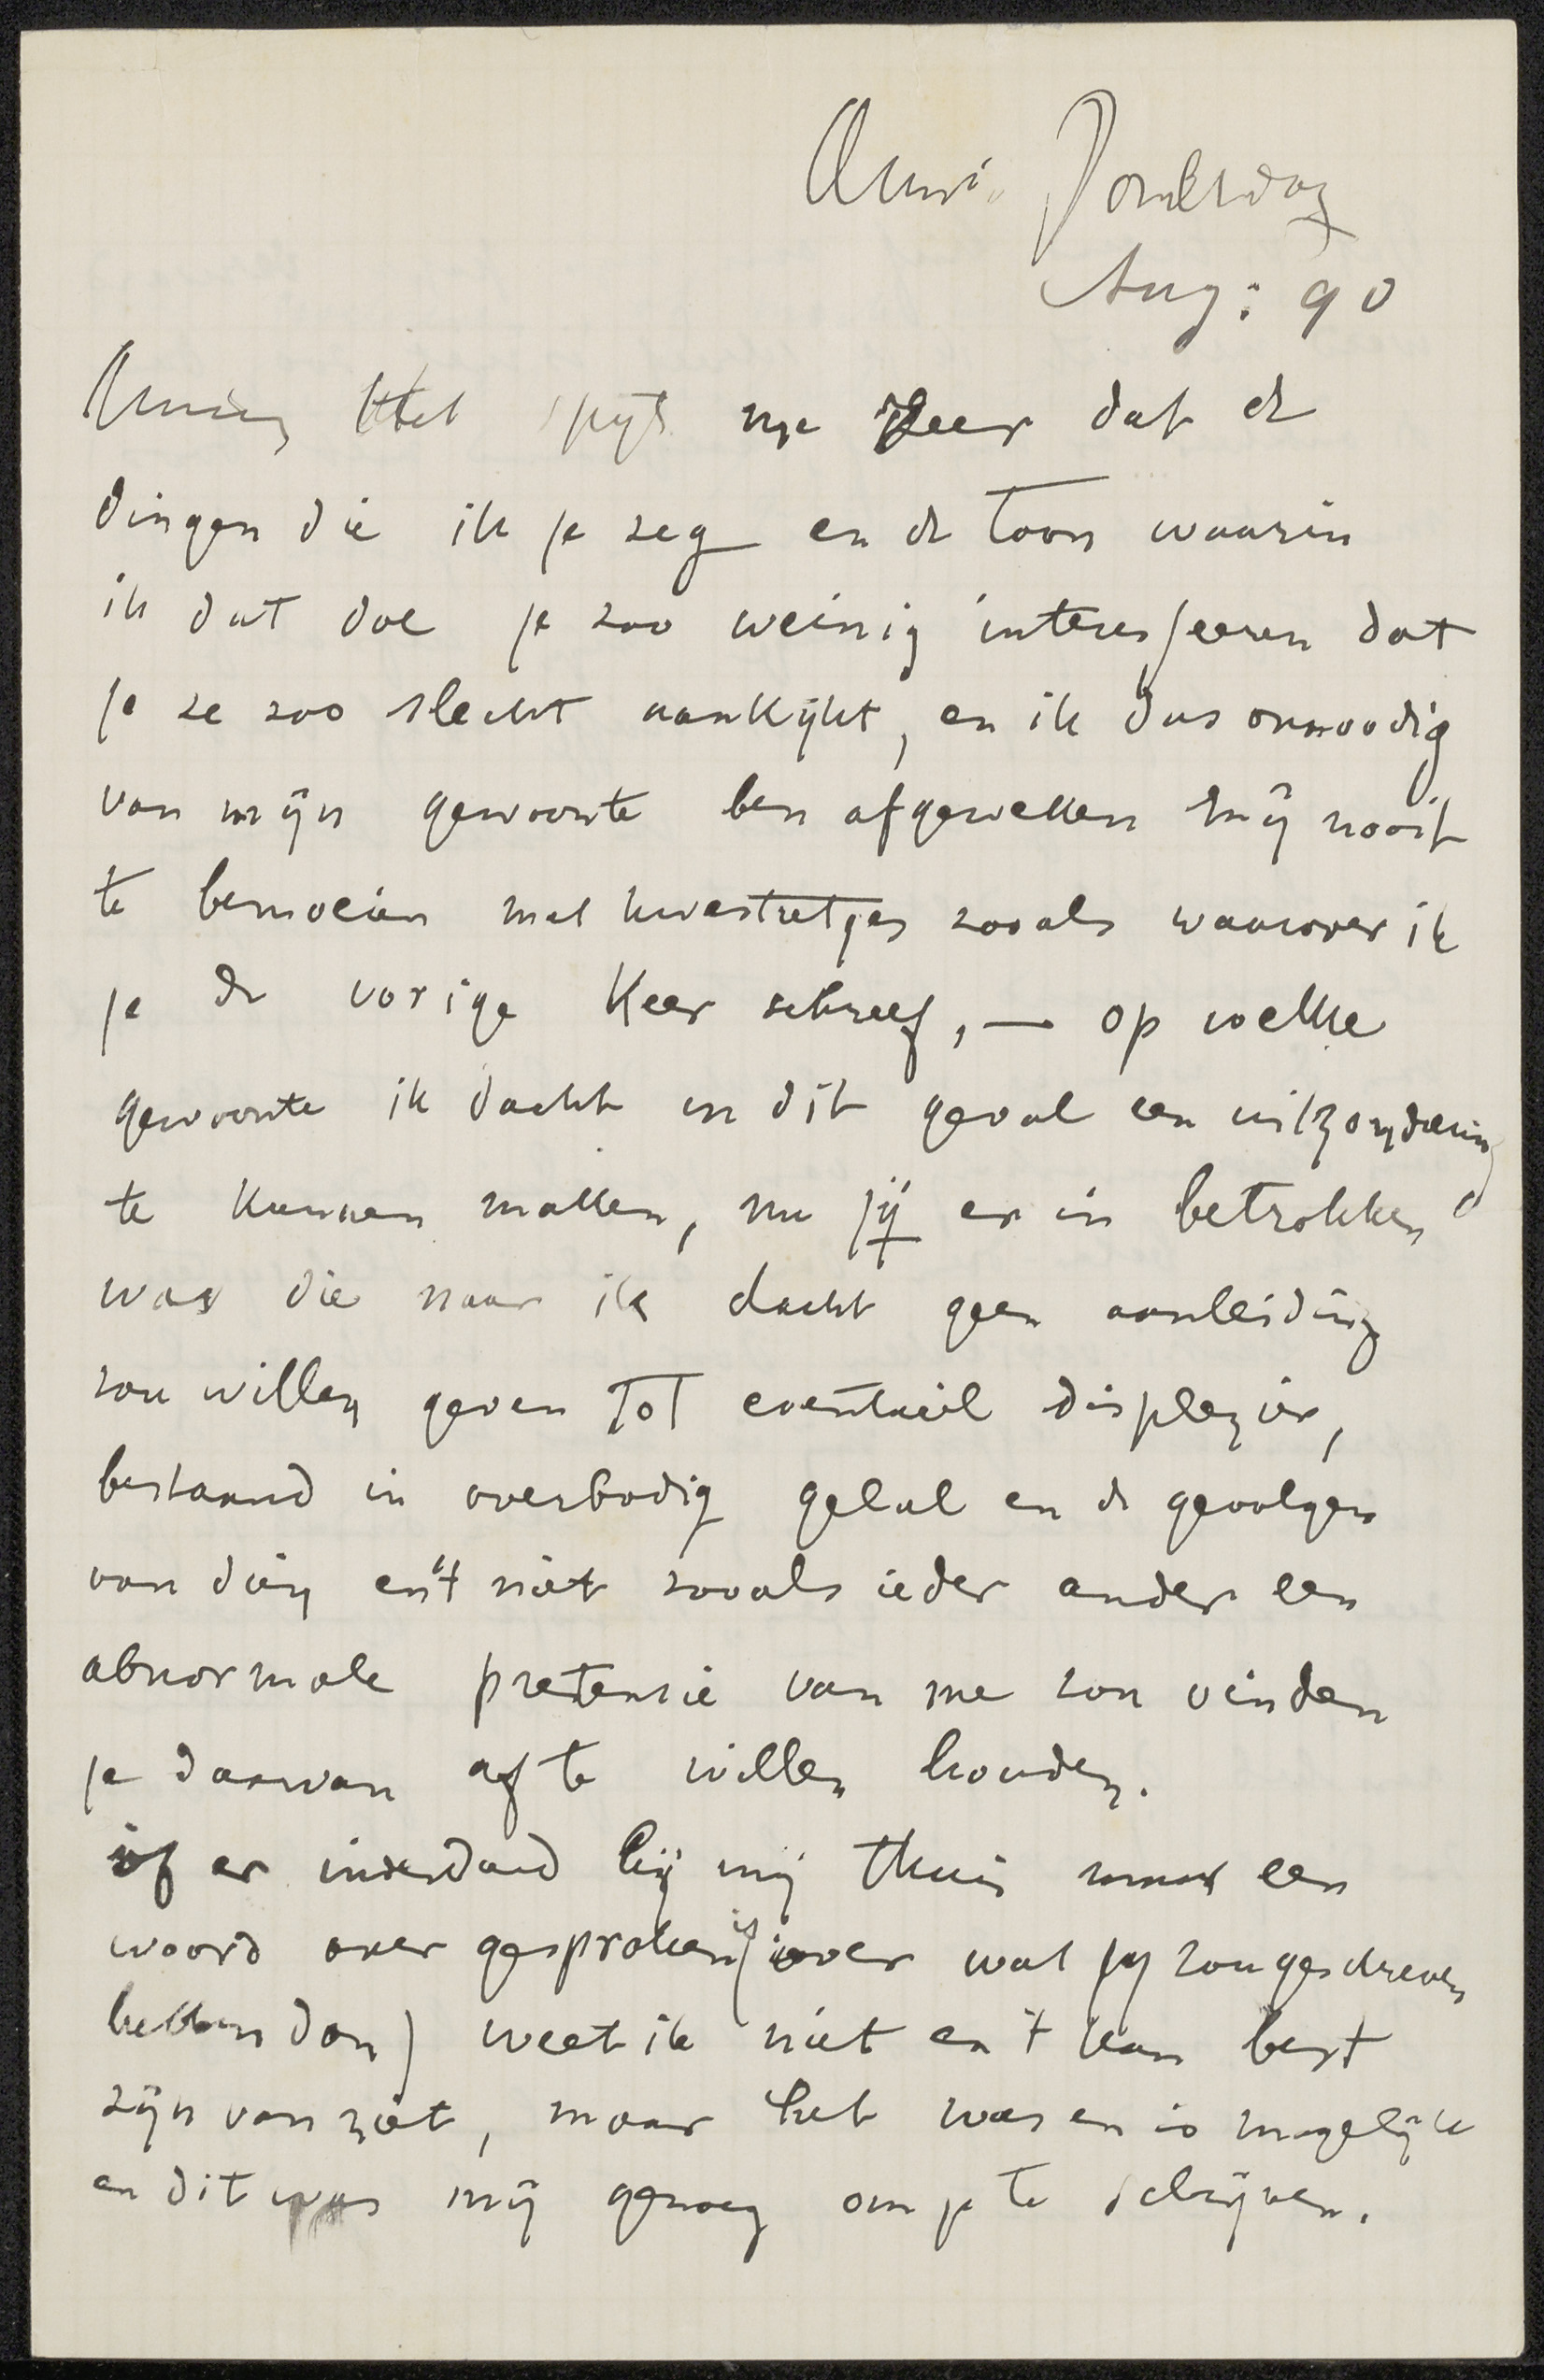 Donderdag
Aug: 90
Het spijt me zeer dat de
dingen die ik je zeg en de toon waarin
ik dat doe je zoo weinig interesseeren dat
je ze zoo slecht aankijkt, en ik dus onnoodig
van mijn gewoonte ben afgeweken mij nooit
te bemoeien met kwestietjes zooals waarover ik
je de vorige keer schreef, — op welke
gewoonte ik dacht in dit geval een uitzondering
te kunnen maken, nu jij er in betrokken
was die naar ik dacht geen aanleiding
zou willen geven tot eventueel displezier,
bestaand in overbodig gelul en de gevolgen
van dien en 't niet zooals ieder ander een
abnormale pretensie van me zou vinden
je daarvan af te willen houden.
of er inderdaad bij mij thuis een
woord over gesproken is (over wat jij zou geschreven
hebben dan) weet ik niet en 't kan best
zijn van niet, maar het was en is mogelijk
en dit was mij genoeg om je te schrijven.